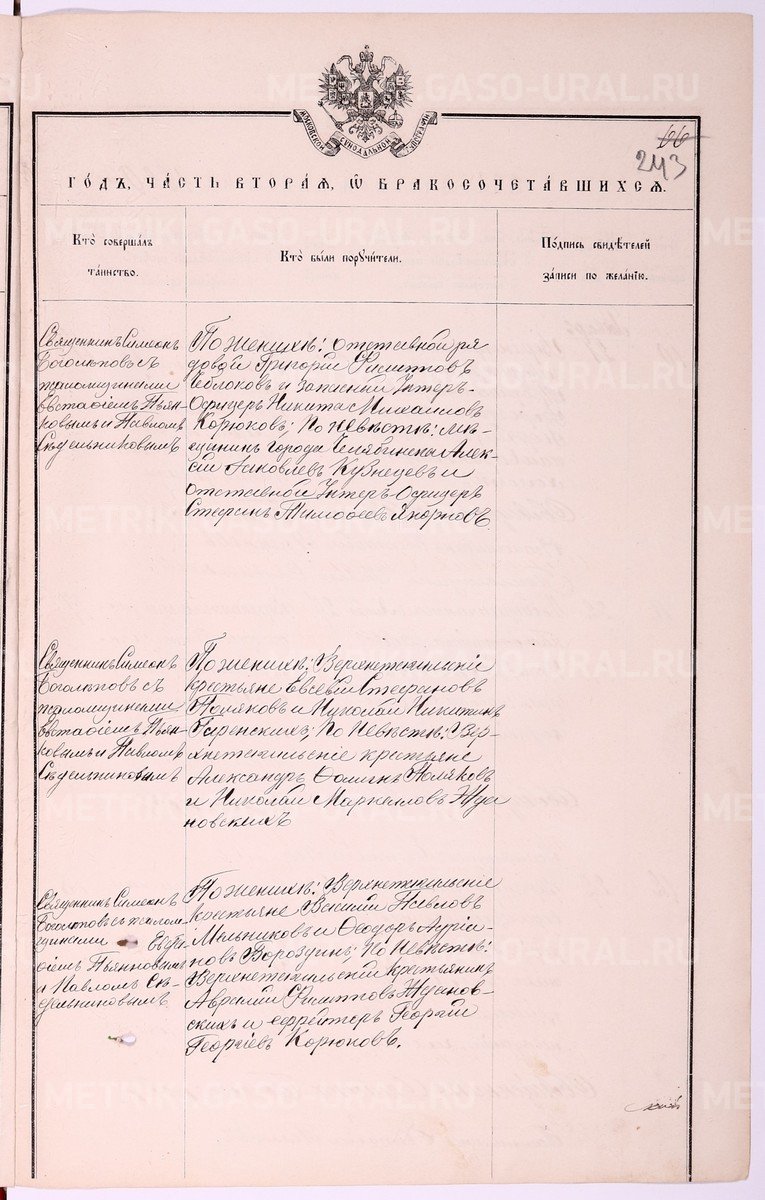 МОСКОВСКОЙ СѴНОДАЛЬНОЙ ТИПОГРАФІИ
66
243
ГОДЪ, ЧАСТЬ ВТОРАЯ, Ѿ БРАКОСОЧЕТАВШИХСЯ.
Кто совершалъ
таинство.
Кто были поручители.
Подпись свидѣтелей
записи по желанію.
Священникъ Симеонъ
Боголѣповъ съ
псаломщиками
Евстафіемъ Пьян-
ковымъ и Павломъ
Сѣдельниковымъ
По женихѣ: отставной ря
довой Григорій Филипповъ
Яблоковъ и Запасный Унтеръ-
Офицеръ Никита Михаиловъ
Корюковъ; По Невѣстѣ: мѣ-
щанинъ города Челябинска Алек-
сій Яковлевъ Кузнецовъ и
отставной Унтеръ-Офицеръ
Стефанъ Тимофеевъ
Священникъ Симеонъ
Боголѣповъ съ
псаломщиками
Евстафіемъ Пьян-
ковымъ и Павломъ
Сѣдельниковымъ
По женихѣ: Верхнетагильскіе
крестьяне Евсевій Стефановъ
Поляковъ и Николай Никитинъ
По Невѣстѣ: Вер-
хнетагильскіе крестьяне
Александръ Фоминъ Поляковъ
и Николай Маркелловъ Жда
новскихъ
Священникъ Симеонъ
Боголѣповъ съ псалом-
щиками Евста-
фіемъ Пьянковымъ
и Павломъ Сѣ-
дельниковымъ
По женихѣ: Верхнетагильскіе
крестьяне Павловъ
Мельниковъ и Ѳеодоръ Андріа-
новъ Бороздинъ; По Невѣстѣ:
Верхнетагильскій крестьянинъ
Аврамій Филипповъ Жданов-
скихъ и ефрейторъ Георгій
Георгіевъ Корюковъ.
METRIKI.GASO-URAL.RU